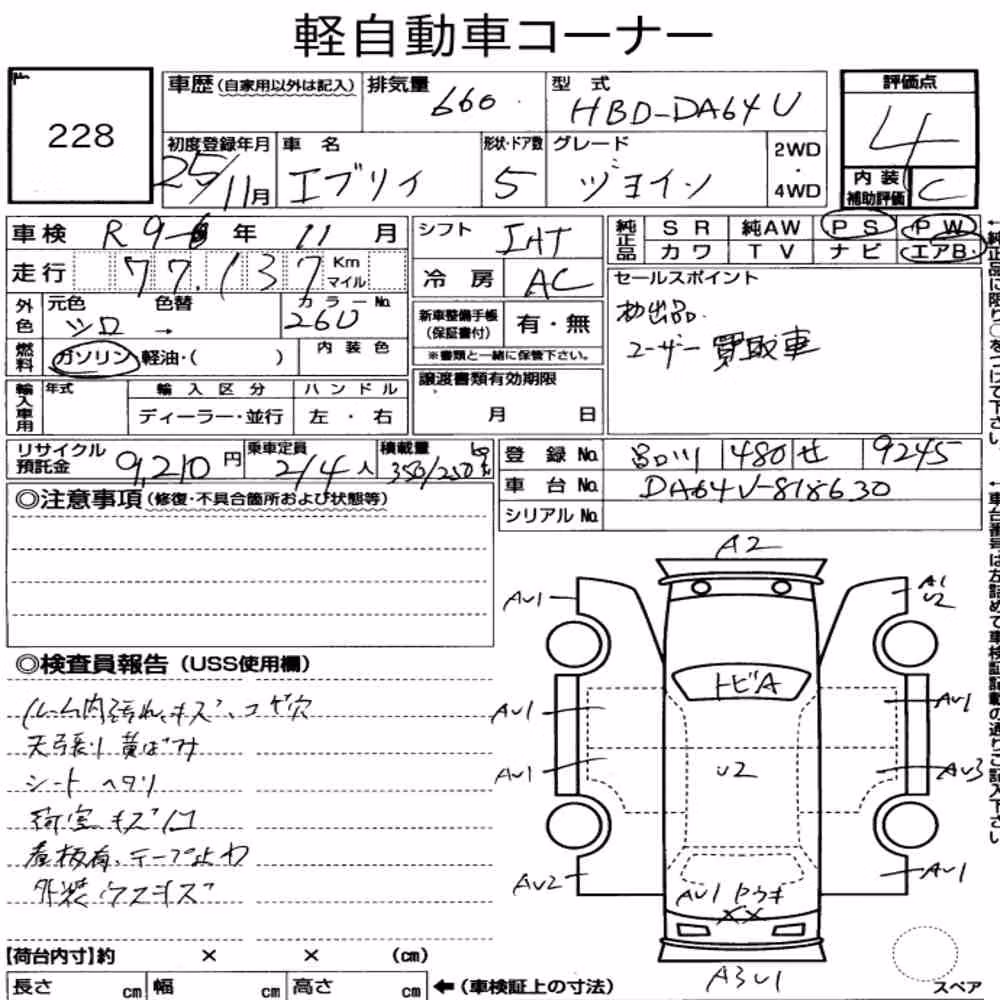 軽自動車コーナー
228
車歴(自家用以外は記入) 排気量 660 型式 HBD-DA64V
評価点 4
初度登録年月 25/11月 車名 エブリイ 形状・ドア数 5 グレード ジョイン 2WD・4WD
内装補助評価 C
車検 R9年 11月 シフト IAT 純正品 SR 純AW PS PW
カワ TV ナビ エアB
走行 77,137 Km マイル 冷房 AC セールスポイント
外色 元色 シロ 色替 → カラーNo 26U
新車整備手帳(保証書付) 有・無
※書類と一緒に保管下さい。
抽出品
ユーザー買取車
燃料 ガソリン・軽油・( ) 内装色
輸入車用 年式 輸入区分 ハンドル
ディーラー・並行 左・右
譲渡書類有効期限
月 日
リサイクル預託金 9,210円 乗車定員 2/4人 積載量 350/250kg
登録No. 品川 480 せ 9245
車台No. DA64V-818630
シリアルNo.
◎注意事項(修復・不具合箇所および状態等)
◎検査員報告(USS使用欄)
ルーム内汚れ、キズ、コゲ穴
天張り黄ばみ
シートヘタリ
荷室キズ凹
看板有、テープ止ワ
外装ウスキズ
【荷台内寸】約 × × (cm)
長さ cm 幅 cm 高さ cm ←(車検証上の寸法)
A2
AU1
A1
U2
トビA
AU1
AU1
AU1
U2
AU3
AU2
AU1
AU1 ワウキ
XX
A3U1
スペア
←純正品に限り○をつけて下さい。
←車台番号は左詰めで車検証記載の通りご記入下さい